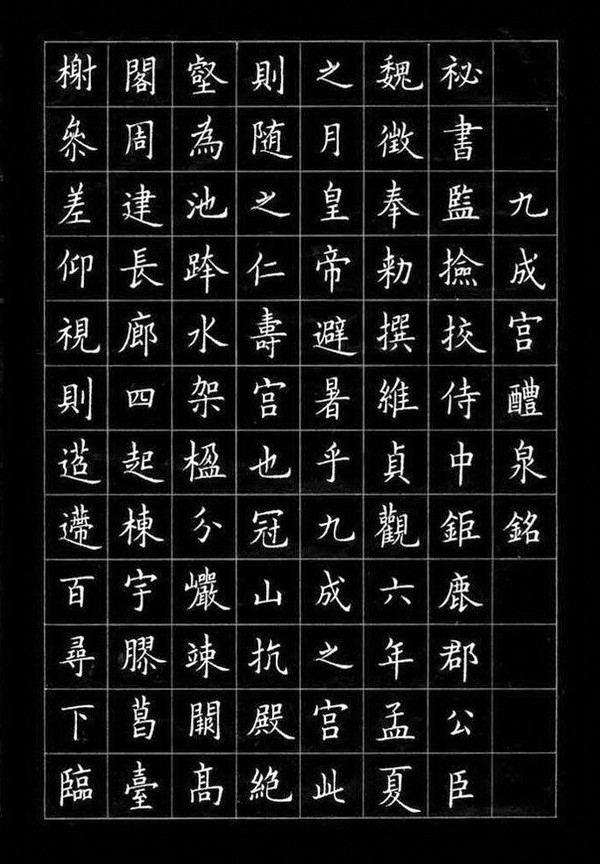 九成宫醴泉銘
秘書監撿挍侍中鉅鹿郡公臣
魏徵奉勑撰維貞觀六年孟夏
之月皇帝避暑乎九成之宫此
則随之仁壽宫也冠山抗殿絶
壑為池跨水架楹分巖竦闕髙
閣周建長廊四起棟宇膠葛臺
榭叅差仰視則迢遰百尋下臨